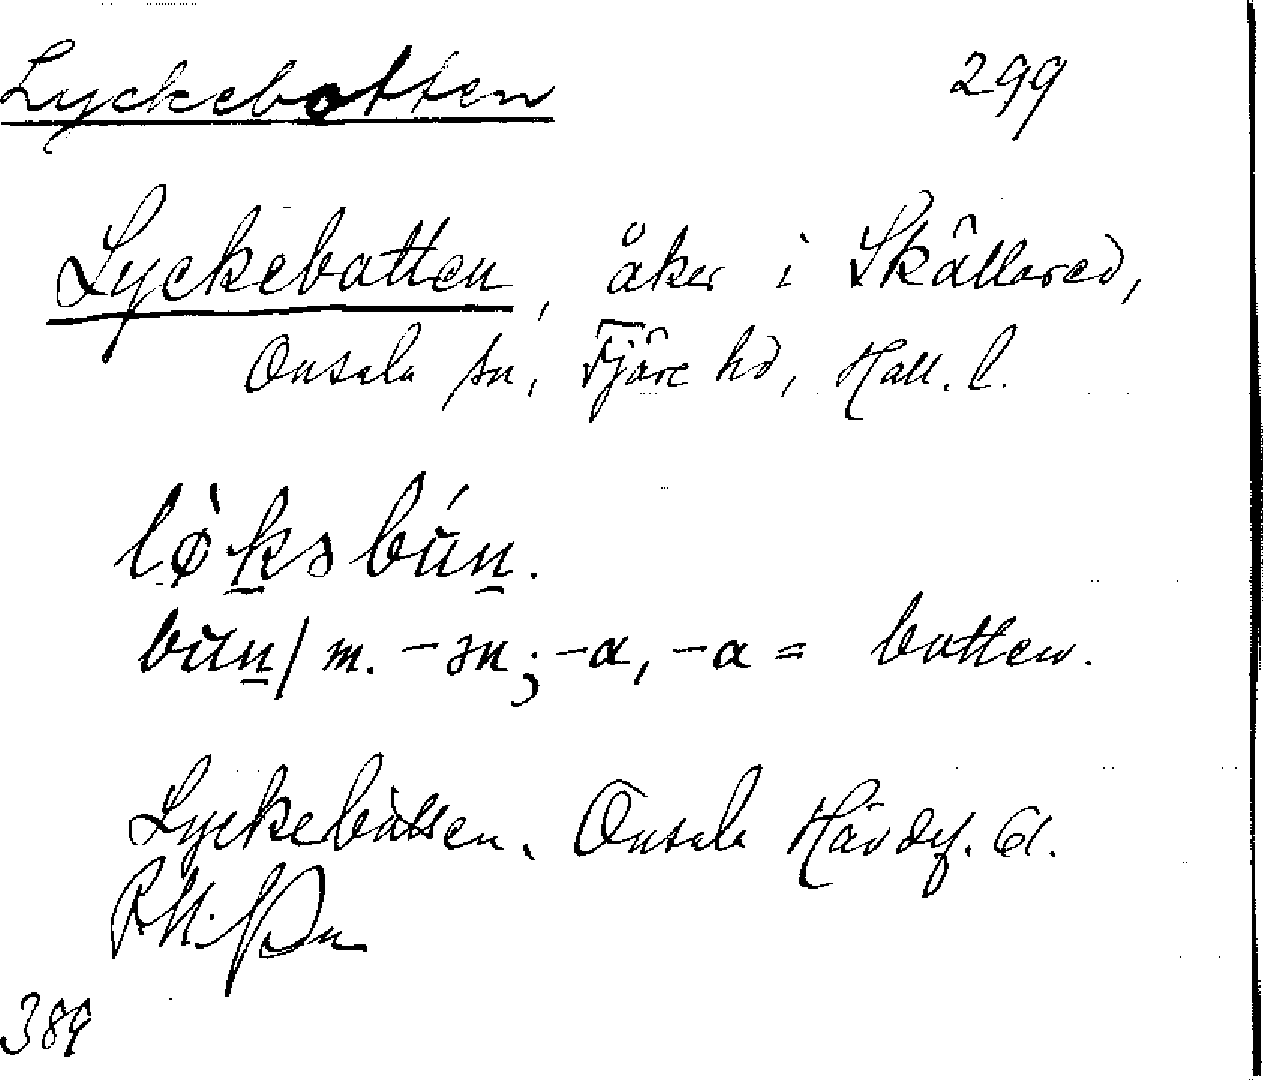 Lyckebotten 299
Lyckebotten, åker i Skällared,
Onsala sn, Fjäre hd, Hall. l.
lø̀kəbún.
bun/ m. -ən; -a, -a = botten.
Lyckebåtten. Onsala Hävdf.
389